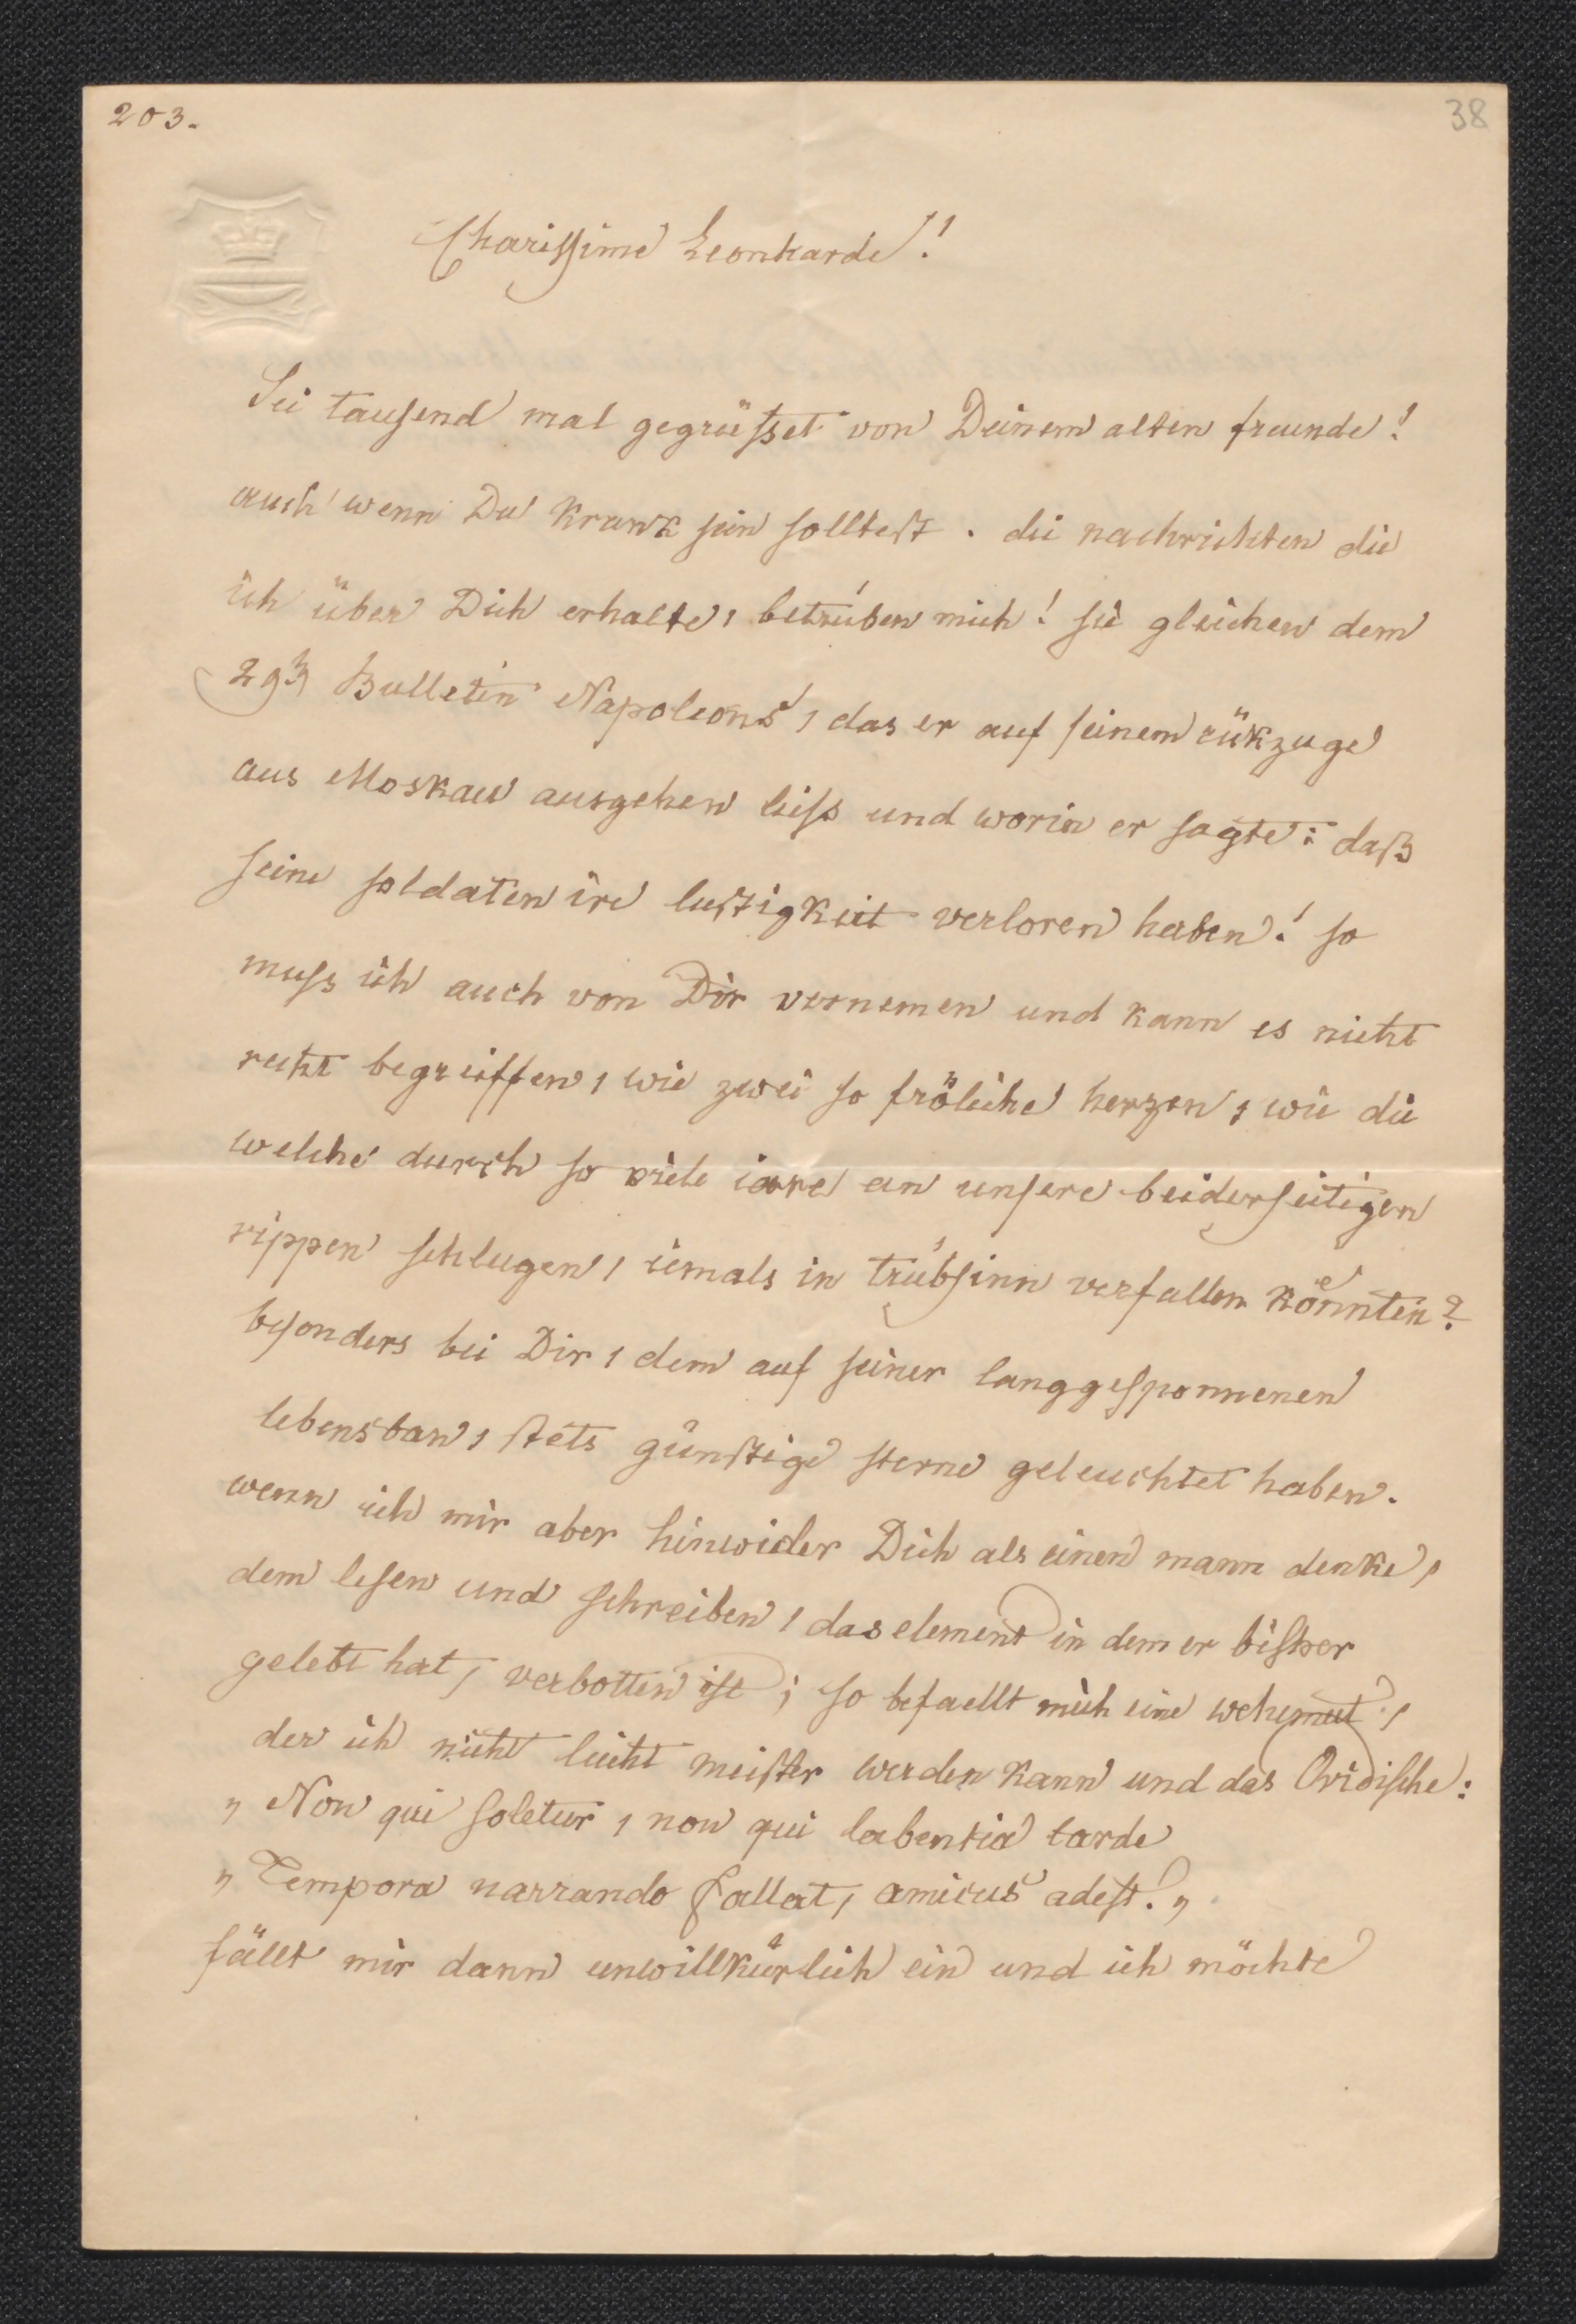 203.
38
Charissime Leonharde!
Sei tausend mal gegrüsset von Deinem alten freunde!
auch wenn Du krank sein solltest. die nachrichten die
ich über Dich erhalte, betrüben mich! sie gleichen dem
29ten Bulletin Napoleons, das er auf seinem rükzuge
aus Moskau ausgehen liess und worin er sagte: daß
seine soldaten ire lustigkeit verloren haben! so
muss ich auch von Dir vernemen und kann es nicht
recht begreiffen, wie zwei so fröliche herzen, wie die
welche durch so viele iare an unsere beiderseitigen
rippen schlugen, iemals in trübsinn verfallen könnten?
besonders bei Dir, dem auf seiner langgesponnenen
lebensban, stets günstige sterne geleuchtet haben.
wenn ich mir aber hinwider Dich als einen mann denke,
dem lesen und schreiben, das element in dem er bisher
gelebt hat, verbotten ist; so befaellt mich eine wehemut,
der ich nicht leicht meister werden kann und das Ovidische:
„Non qui soletur, non qui labentia tarde
„Tempora narrando fallat, amicus adest!„
fällt mir dann unwillkürlich ein und ich möchte